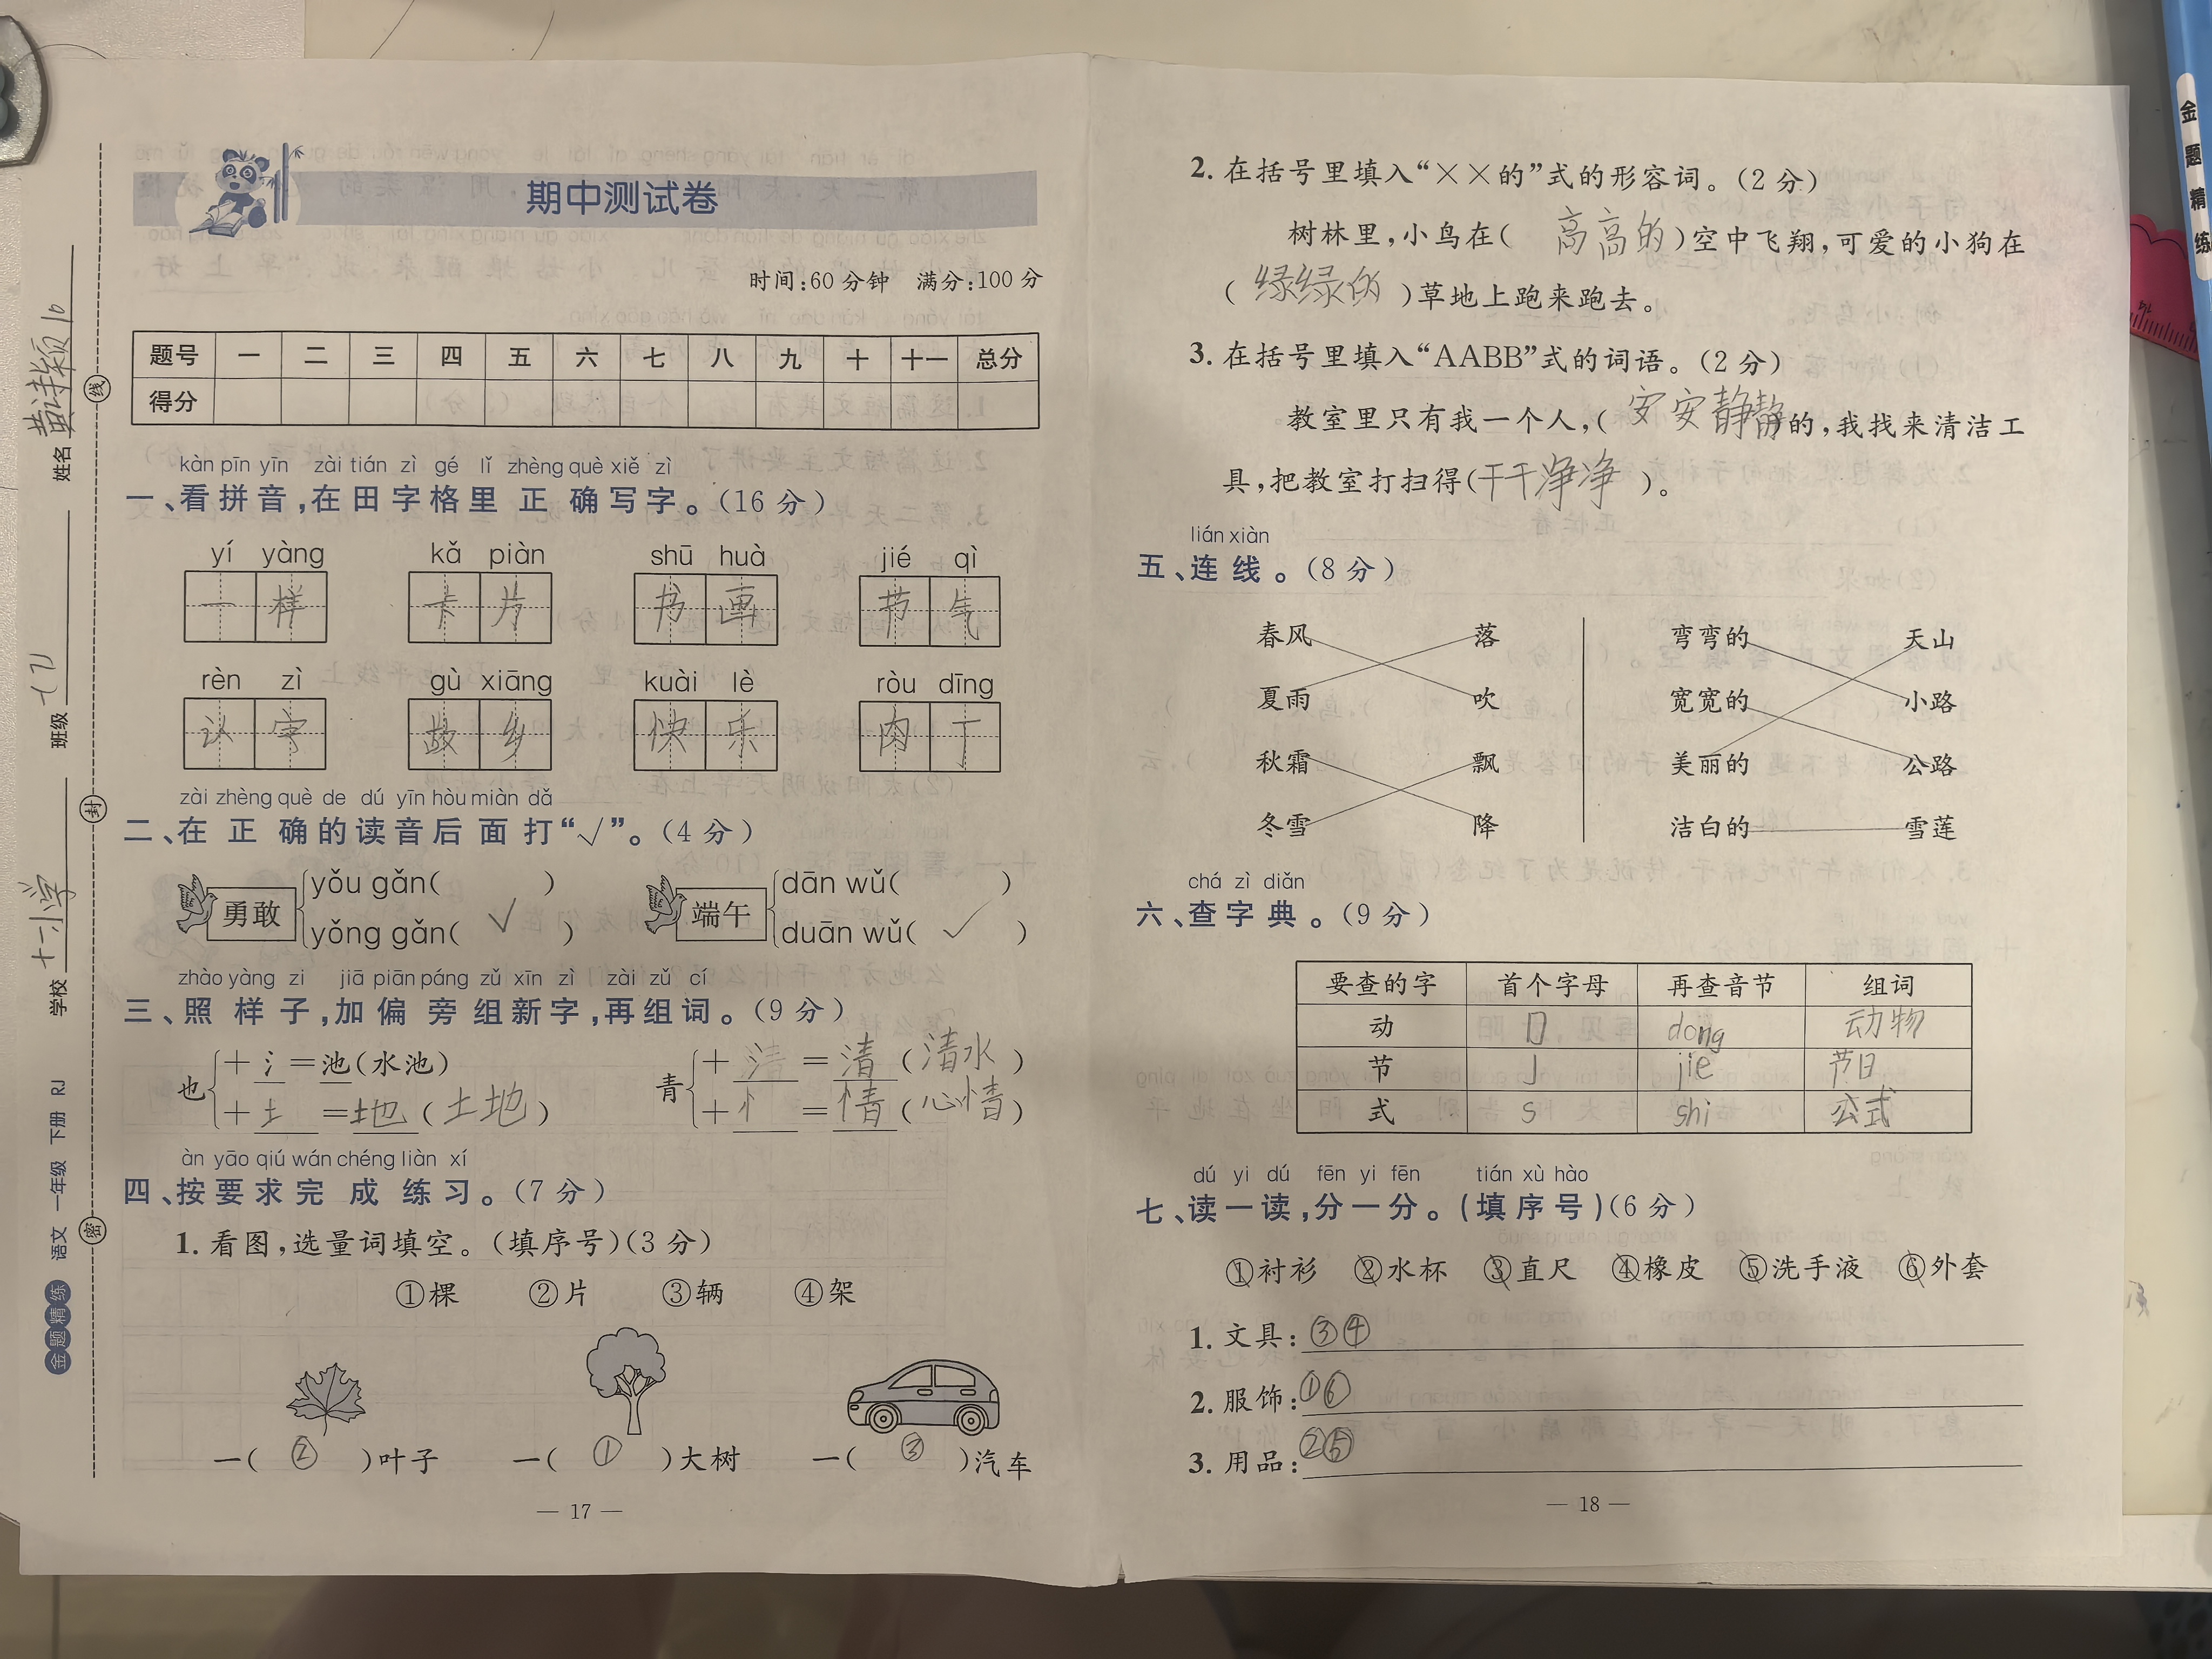 期中测试卷
时间:60分钟 满分:100分
题号 一 二 三 四 五 六 七 八 九 十 十一 总分
得分
kàn pīn yīn zài tián zì gé lǐ zhèng què xiě zì
一、看拼音,在田字格里正确写字。(16分)
yí yàng kǎ piàn shū huà jié qì
一样 卡片 书画 节气
rèn zì gù xiāng kuài lè ròu dīng
认字 故乡 快乐 肉丁
zài zhèng què de dú yīn hòu miàn dǎ
二、在正确的读音后面打“√”。(4分)
勇敢 yǒu gǎn( ) 端午 dān wǔ( )
yǒng gǎn( √ ) duān wǔ( √ )
zhào yàng zi jiā piān páng zǔ xīn zì zài zǔ cí
三、照样子,加偏旁组新字,再组词。(9分)
也 +氵=池(水池) 青 +清=清(清水)
+土=地(土地) +忄=情(心情)
àn yāo qiú wán chéng liàn xí
四、按要求完成练习。(7分)
1.看图,选量词填空。(填序号)(3分)
①棵 ②片 ③辆 ④架
一(②)叶子 一(①)大树 一(③)汽车
— 17 —
2.在括号里填入“××的”式的形容词。(2分)
树林里,小鸟在(高高的)空中飞翔,可爱的小狗在
(绿绿的)草地上跑来跑去。
3.在括号里填入“AABB”式的词语。(2分)
教室里只有我一个人,(安安静静的,我找来清洁工
具,把教室打扫得(干干净净)。
lián xiàn
五、连线。(8分)
春风 落 弯弯的 天山
夏雨 吹 宽宽的 小路
秋霜 飘 美丽的 公路
冬雪 降 洁白的 雪莲
chá zì diǎn
六、查字典。(9分)
要查的字 首个字母 再查音节 组词
动 D dong 动物
节 J jie 节日
式 S shi 公式
dú yi dú fēn yi fēn tián xù hào
七、读一读,分一分。(填序号)(6分)
①衬衫 ②水杯 ③直尺 ④橡皮 ⑤洗手液 ⑥外套
1.文具:③④
2.服饰:①⑥
3.用品:②⑤
— 18 —
学校 十一小学 班级 姓名 黄诗颖
密 封 线
金题精练 语文 一年级 下册 RJ
金题精练